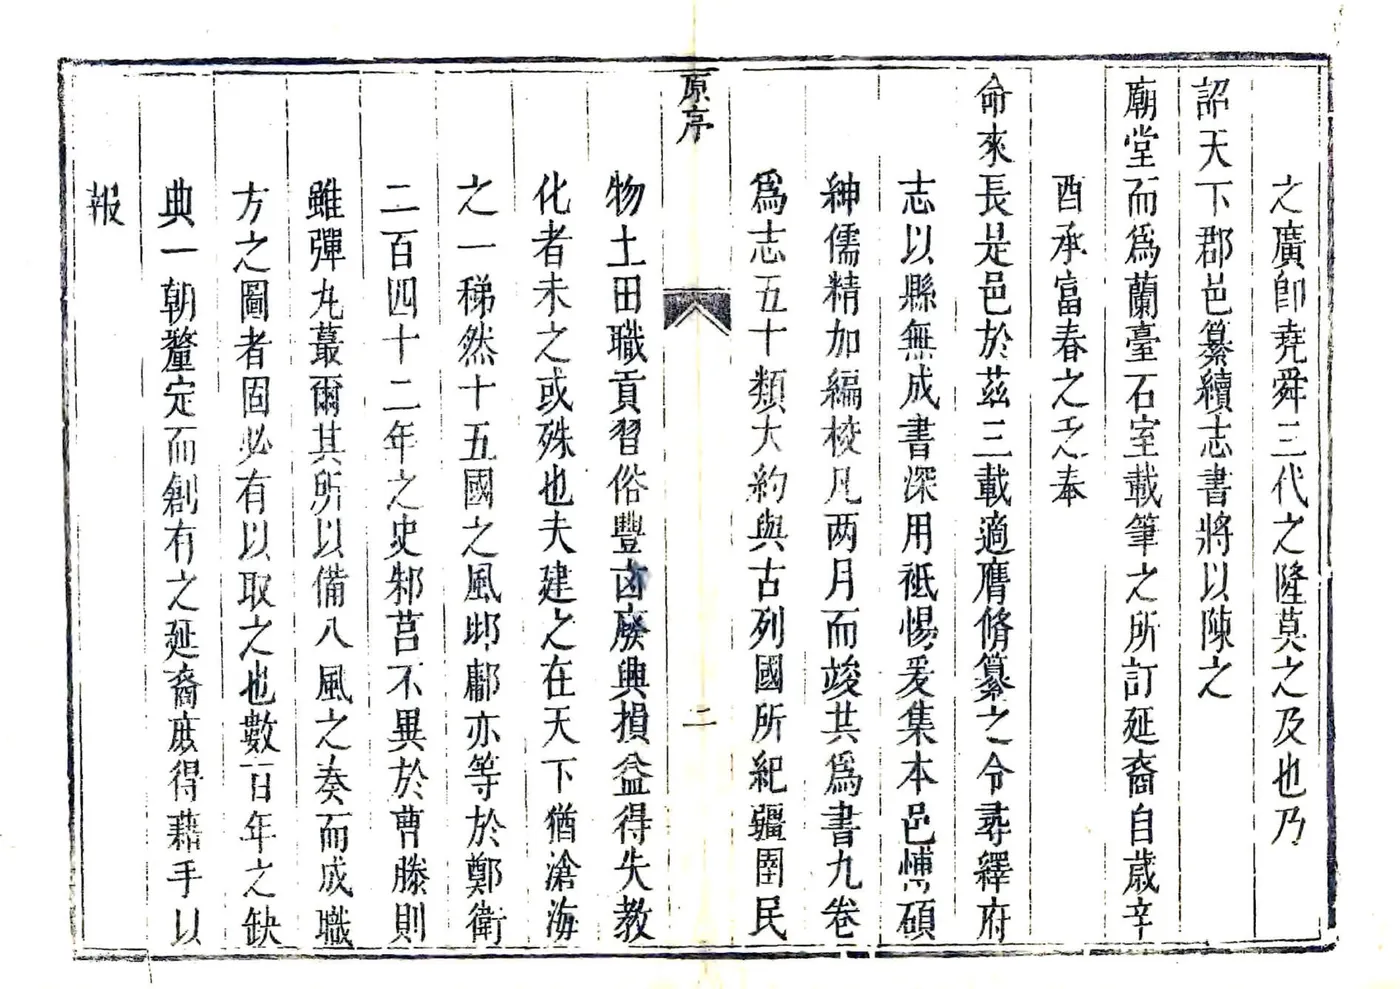 之廣卽堯舜三代之隆莫之及也乃
詔天下郡邑纂續志書將以陳之
廟堂而爲蘭臺石室載筆之所訂延裔自歲辛
酉承富春之乏奉
命來長是邑於茲三載適膺脩纂之令尋繹府
志以縣無成書深用祗惕爰集本邑博碩
紳儒精加編校凡两月而竣共爲書九卷
爲志五十類大約與古列國所紀疆圉民
原序
二
物土田職貢習俗豐卤廢興損益得失教
化者未之或殊也夫建之在天下猶滄海
之一稊然十五國之風邶鄘亦等於鄭衛
二百四十二年之史邾莒不異於曹滕則
雖彈丸蕞爾其所以備八風之奏而成職
方之圖者固必有以取之也數百年之缺
典一朝釐定而創有之延裔庶得藉手以
報